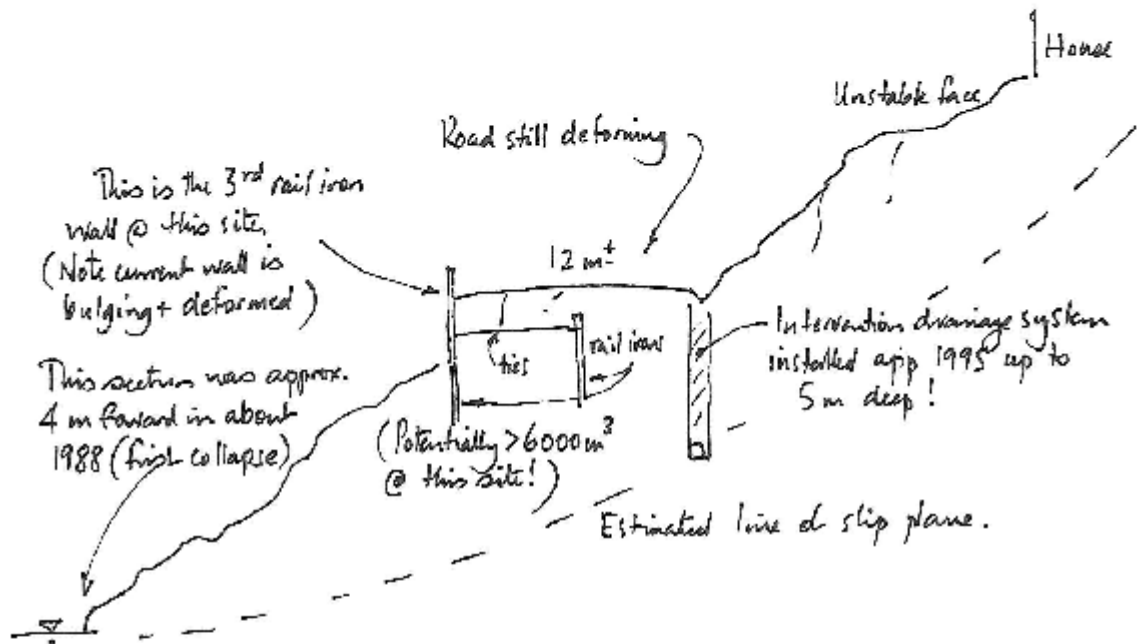 House
Unstable face
Road still deforming
This is the 3rd rail iron
wall @ this site.
(Note current wall is
bulging + deformed)
12 m±
ties
rail irons
Intervention drainage system
installed app 1995 up to
5 m deep!
This section was approx.
4 m forward in about
1988 (first collapse)
(Potentially >6000 m³
@ this site!)
Estimated line of slip plane.